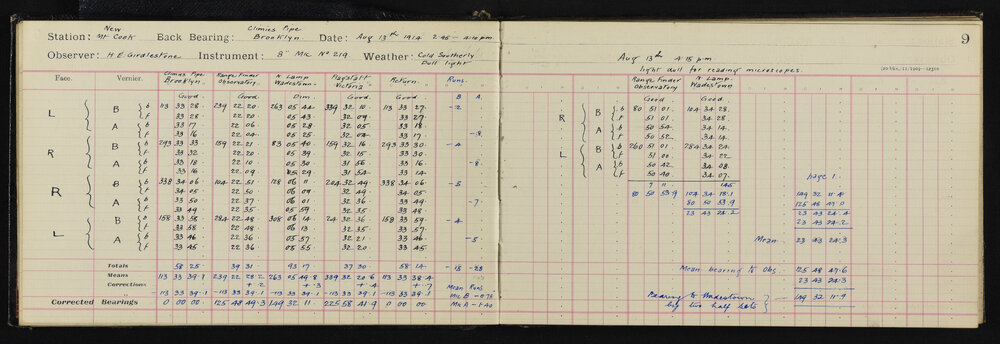 New Climies Pipe
Station: Mt Cook Back Bearing: Brooklyn. Date: Aug 13th 1914 2.45 - 4.10 p.m.
Observer: H.E. Girdlestone Instrument: 8" Mic No 219 Weather: Cold Southerly
Dull light
Face. Vernier. Climies Pipe Brooklyn. Range Finder Observatory. N Lamp Wadestown. Flagstaff Victoria. Return. Runs.
Good. Good. Dim. Good. Good. B A
L B b 113 33 28 239 22 20 263 05 44 339 32 10 113 33 27 -2
f 33 28 22 20 05 43 32 09 33 27
A b 33 17 22 06 05 28 32 05 33 18
f 33 16 22 04 05 25 32 04 33 17
R B b 293 33 33 159 22 21 83 05 40 159 32 16 293 33 30 -4
f 33 32 22 20 05 39 32 15 33 30
A b 33 18 22 10 05 30 31 56 33 16 -8
f 33 16 22 09 05 29 31 54 33 14
R B b 338 34 06 104 22 51 128 06 11 204 32 49 338 34 06 -5
f 34 05 22 50 06 09 32 49 34 05
A b 33 50 22 37 06 01 32 36 33 49 -7
f 33 49 22 35 05 59 32 35 33 48
L B b 158 33 58 284 22 48 308 06 14 24 32 36 158 33 59 -4
f 33 58 22 48 06 13 32 35 33 57
A b 33 46 22 36 05 57 32 21 33 46 -5
f 33 45 22 36 05 55 32 20 33 45
Totals 58 25 39 31 93 17 37 30 58 14 -15 -23
Means 113 33 39.1 239 22 28.2 263 05 49.8 339 32 20.6 113 33 38.4
Corrections +.2 +.3 +.4 +.7 Mean Runs
-113 33 39.1 -113 33 39.1 -113 33 39.1 -113 33 39.1 -113 33 39.1 Mic B
Corrected Bearings 0 00 00 125 48 49.3 149 32 11. 225 58 41.9 0 00 00 Mic A
9
Aug 13th 4.15 p m
light dull for reading microscopes.
Range Finder Observatory N Lamp Wadestown.
Good Good
R B b 80 51 01 104 34 28
f 51 01 34 28
A b 50 54 34 14
f 50 52 34 14
L B b 260 51 01 284 34 24
f 51 00 34 22
A b 50 42 34 08
f 50 40 34 07
7 11 145
80 50 53.9 104 34 18.1
80 50 53.9
23 43 24.2
Page 1.
149 32 11.4
125 48 47.0
23 43 24.4
23 43 24.2
Mean 23 43 24.3
Mean bearing to Obs. 125 48 47.6
23 43 24.3
Bearing to Wadestown by two half sets 149 32 11.9